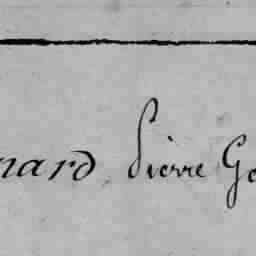 nard Pierre Ge